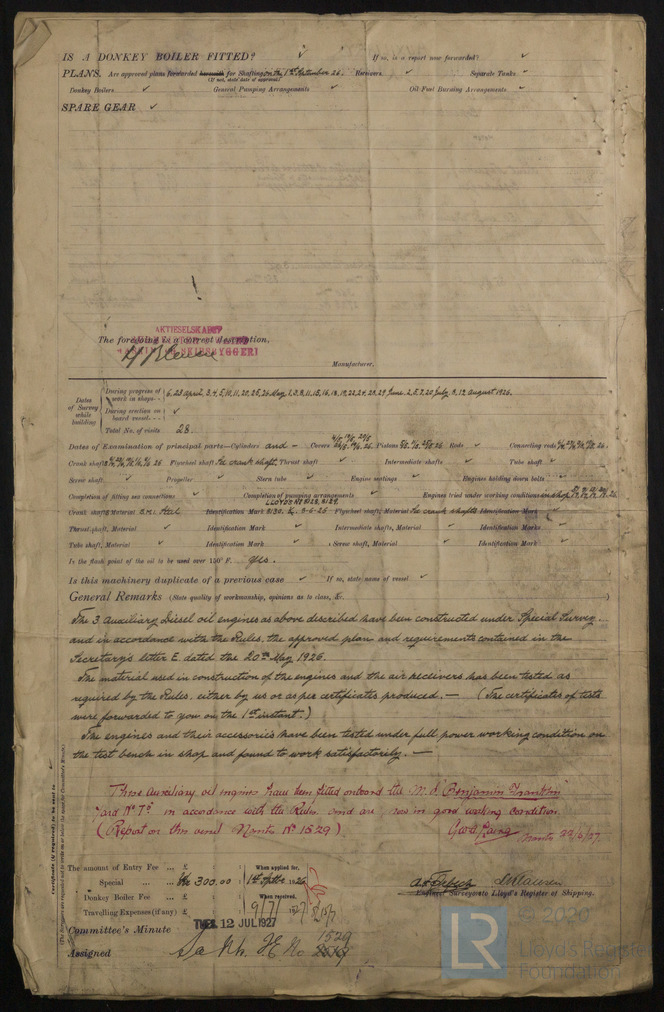 IS A DONKEY BOILER FITTED? ✓ If so, is a report now forwarded? ✓
PLANS. Are approved plans forwarded herewith for Shafting on the 1st September 26. Receivers ✓ Separate Tanks ✓
(If not, state date of approval)
Donkey Boilers ✓ General Pumping Arrangements ✓ Oil Fuel Burning Arrangements ✓
SPARE GEAR ✓
AKTIESELSKABET
The foregoing is a correct description,
Manufacturer.
Dates of Survey while building
During progress of work in shops - - 6, 23 april, 3, 4, 5, 10, 11, 20, 25, 26 May, 1, 3, 9, 11, 15, 16, 18, 19, 22, 24, 28, 29 June, 2, 5, 7, 20 July, 11, 12 August 1926.
During erection on board vessel - - ✓
Total No. of visits 28
Dates of Examination of principal parts—Cylinders and - Covers Pistons Rods ✓ Connecting rods
Crank shaft Flywheel shaft See crank shaft, Thrust shaft ✓ Intermediate shafts ✓ Tube shaft ✓
Screw shaft ✓ Propeller ✓ Stern tube ✓ Engine seatings ✓ Engines holding down bolts ✓
Completion of fitting sea connections ✓ Completion of pumping arrangements ✓ Engines tried under working conditions in shop
Crank shaft, Material S.M. Steel Identification Mark LLOYD'S No 8128, 8129, 8130. 3-6-26 Flywheel shaft, Material See crank shafts Identification Mark ✓
Thrust shaft, Material ✓ Identification Mark ✓ Intermediate shafts, Material ✓ Identification Marks ✓
Tube shaft, Material ✓ Identification Mark ✓ Screw shaft, Material ✓ Identification Mark ✓
Is the flash point of the oil to be used over 150° F. Yes.
Is this machinery duplicate of a previous case ✓ If so, state name of vessel ✓
General Remarks (State quality of workmanship, opinions as to class, &c.)
The 3 Auxiliary Diesel oil engines as above described have been constructed under Special Survey
and in accordance with the Rules, the approved plan and requirements contained in the
Secretary's letter E. dated the 20th May 1926.
The material used in construction of the engines and the air receivers has been tested as
required by the Rules, either by us or as per certificates produced. — (The certificates of tests
were forwarded to you on the 1st instant.)
The engines and their accessories have been tested under full power working condition on
the test bench in shop and found to work satisfactorily. —
These Auxiliary oil engines have been fitted onboard the M.V. Benjamin Franklin
Yard No 78 in accordance with the Rules and are now in good working condition.
(Report on this vessel Nantes No 1529) Nantes 29/6/27.
Certificate (if required) to be sent to
(The Surveyors are requested not to write on or below the space for Committee's Minute.)
The amount of Entry Fee ... £ When applied for,
Special ... ... £ 300.00 1st Septbr 1926
Donkey Boiler Fee ... £ When received,
Travelling Expenses (if any) £ 9/7/27
Engineer Surveyors to Lloyd's Register of Shipping.
Committee's Minute TUES. 12 JUL 1927
Assigned 1529
LR © 2020
Lloyd's Register
Foundation